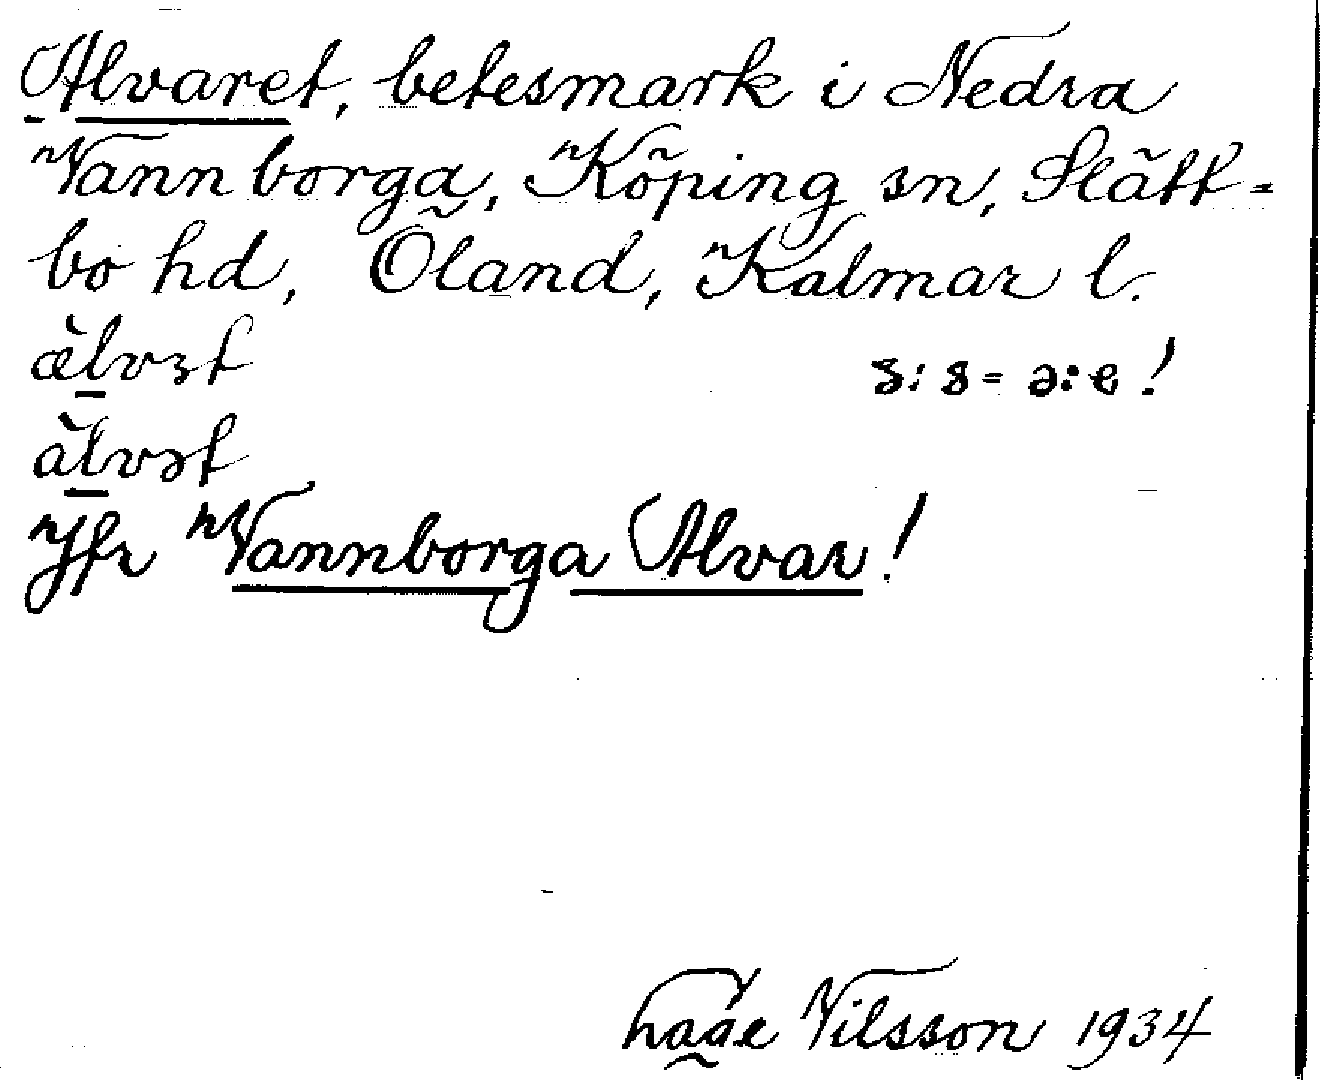 Alvaret, betesmark i Nedra
Vannborga, Köping sn, Slätt-
bo hd, Öland, Kalmar l.
älvɜt
àlvət
Jfr Vannborga Alvar!
Hage Nilsson 1934